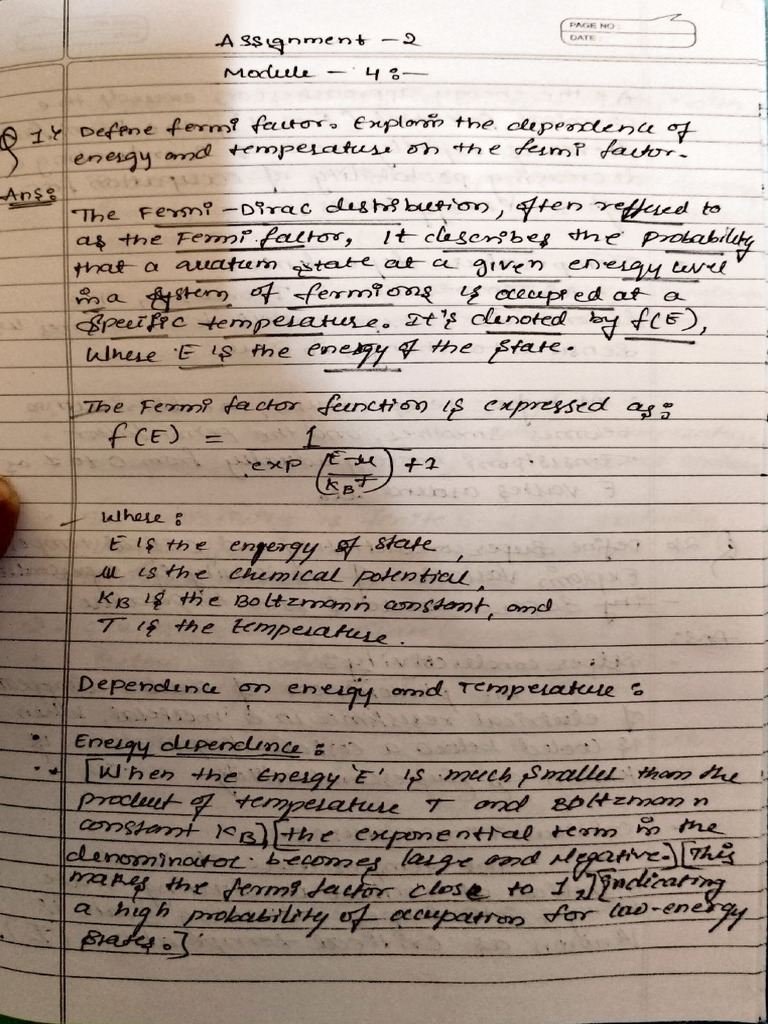 PAGE NO
DATE
Assignment - 2
Module - 4 :-
Q 1} Define fermi factor. Explain the dependence of
energy and temperature on the fermi factor.
Ans:
The Fermi - Dirac distribution, often reffered to
as the Fermi factor, It describes the probability
that a quatum state at a given energy level
in a system of fermions is occupied at a
specific temperature. It's denoted by f(E),
Where E is the energy of the state.
The Fermi factor function is expressed as:
f(E) = 1
exp (E-μ / KBT) + 1
Where :
E is the engergy of state,
μ is the chemical potential,
KB is the Boltzmann constant, and
T is the temperature.
Dependence on energy and Temperature :
• Energy dependence :
• [When the Energy 'E' is much smaller than the
product of temperature T and Boltzmann
constant KB] [the exponential term in the
denominator becomes large and Negative.] [This
makes the fermi factor close to 1,] [indicating
a high probability of occupation for low-energy
states.]